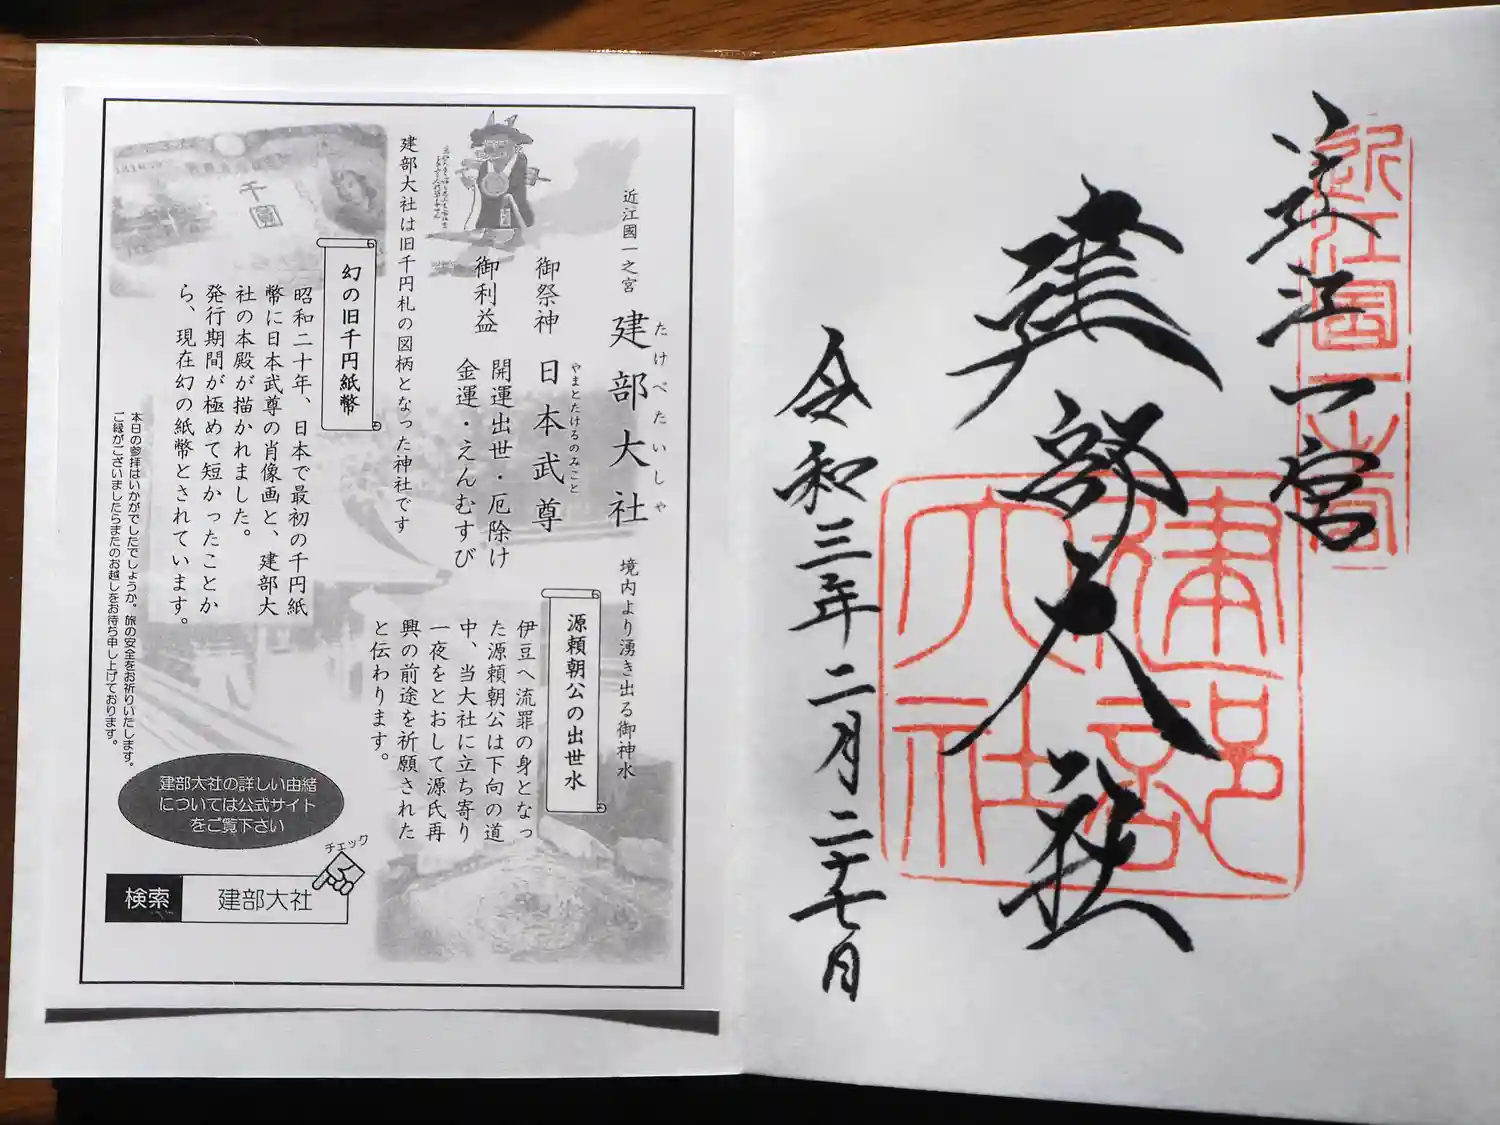 近江一宮
建部大社
令和三年二月二十七日
近江国一之宮
建部大社
近江國一之宮
建部大社
たけべたいしゃ
御祭神 日本武尊
やまとたけるのみこと
御利益 開運出世・厄除け
金運・えんむすび
建部大社は旧千円札の図柄となった神社です
幻の旧千円紙幣
昭和二十年、日本で最初の千円紙
幣に日本武尊の肖像画と、建部大
社の本殿が描かれました。
発行期間が極めて短かったことか
ら、現在幻の紙幣とされています。
境内より湧き出る御神水
源頼朝公の出世水
伊豆へ流罪の身となっ
た源頼朝公は下向の道
中、当大社に立ち寄り
一夜をとおして源氏再
興の前途を祈願された
と伝わります。
本日の参拝はいかがでしたでしょうか。旅の安全をお祈りいたします。
ご縁がございましたらまたのお越しをお待ち申し上げております。
建部大社の詳しい由緒
については公式サイト
をご覧下さい
チェック
検索 建部大社
千圓